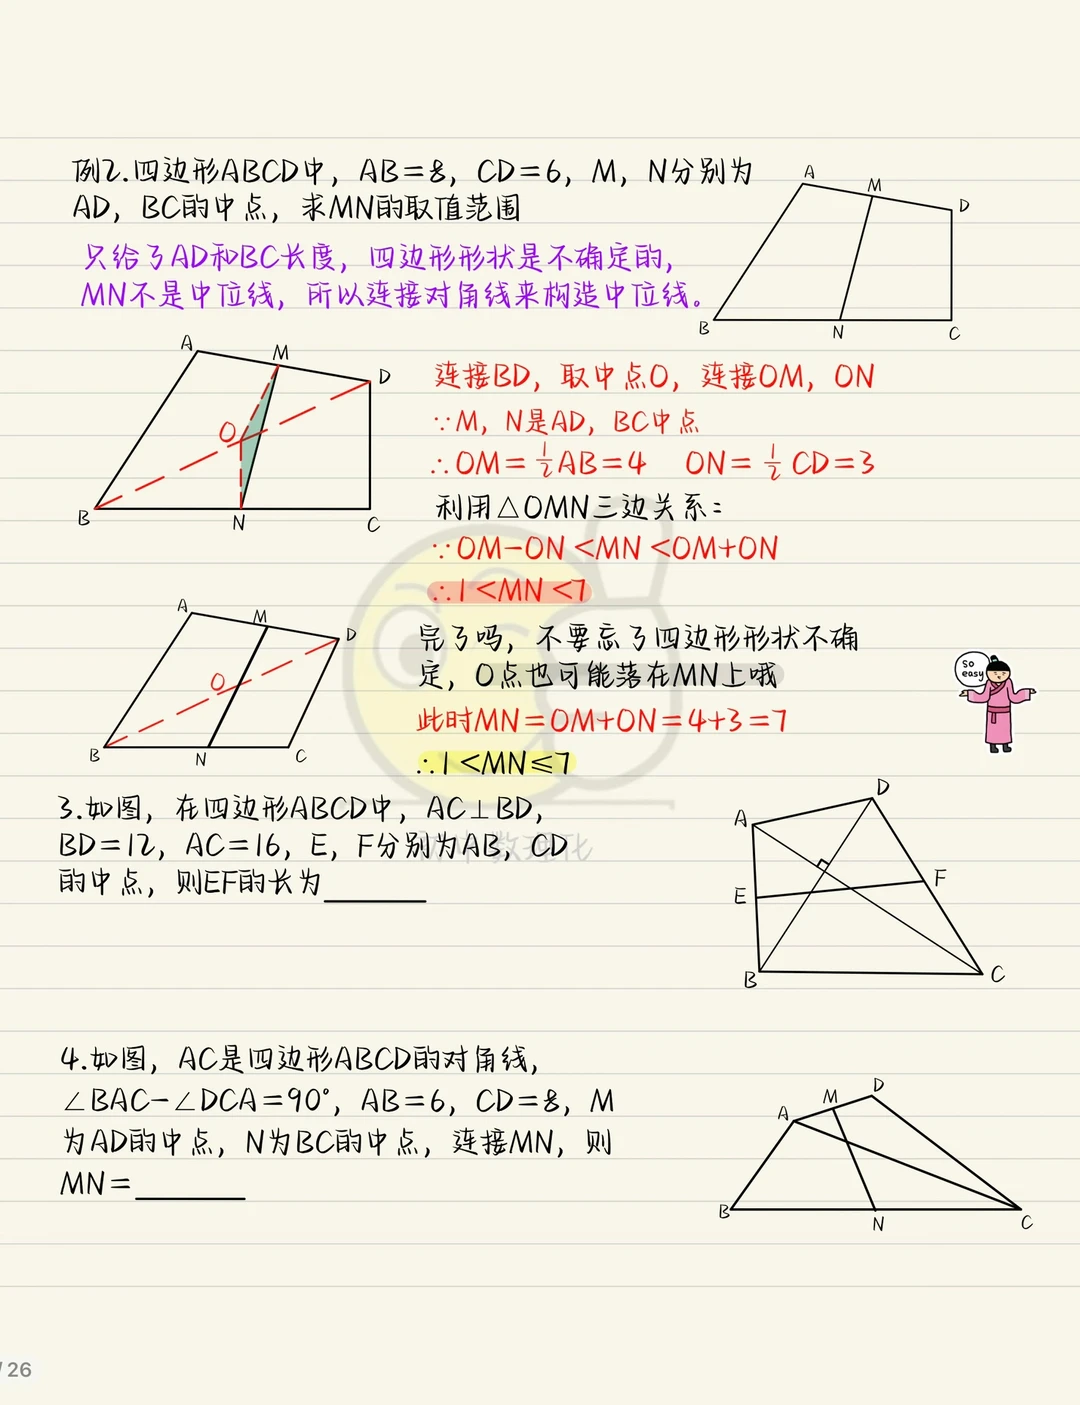 例2.四边形ABCD中，AB=8，CD=6，M，N分别为
AD，BC的中点，求MN的取值范围
只给了AD和BC长度，四边形形状是不确定的，
MN不是中位线，所以连接对角线来构造中位线。
A
M
D
B
N
C
A
M
D
O
B
N
C
连接BD，取中点O，连接OM，ON
∵M，N是AD，BC中点
∴OM=½AB=4 ON=½CD=3
利用△OMN三边关系：
∵OM-ON<MN<OM+ON
∴1<MN<7
A
M
D
O
B
N
C
完了吗，不要忘了四边形形状不确
定，O点也可能落在MN上哦
此时MN=OM+ON=4+3=7
∴1<MN≤7
So
easy
3.如图，在四边形ABCD中，AC⊥BD，
BD=12，AC=16，E，F分别为AB，CD
的中点，则EF的长为
数理化
D
A
E
F
B
C
4.如图，AC是四边形ABCD的对角线，
∠BAC-∠DCA=90°，AB=6，CD=8，M
为AD的中点，N为BC的中点，连接MN，则
MN=
D
M
A
B
N
C
/26